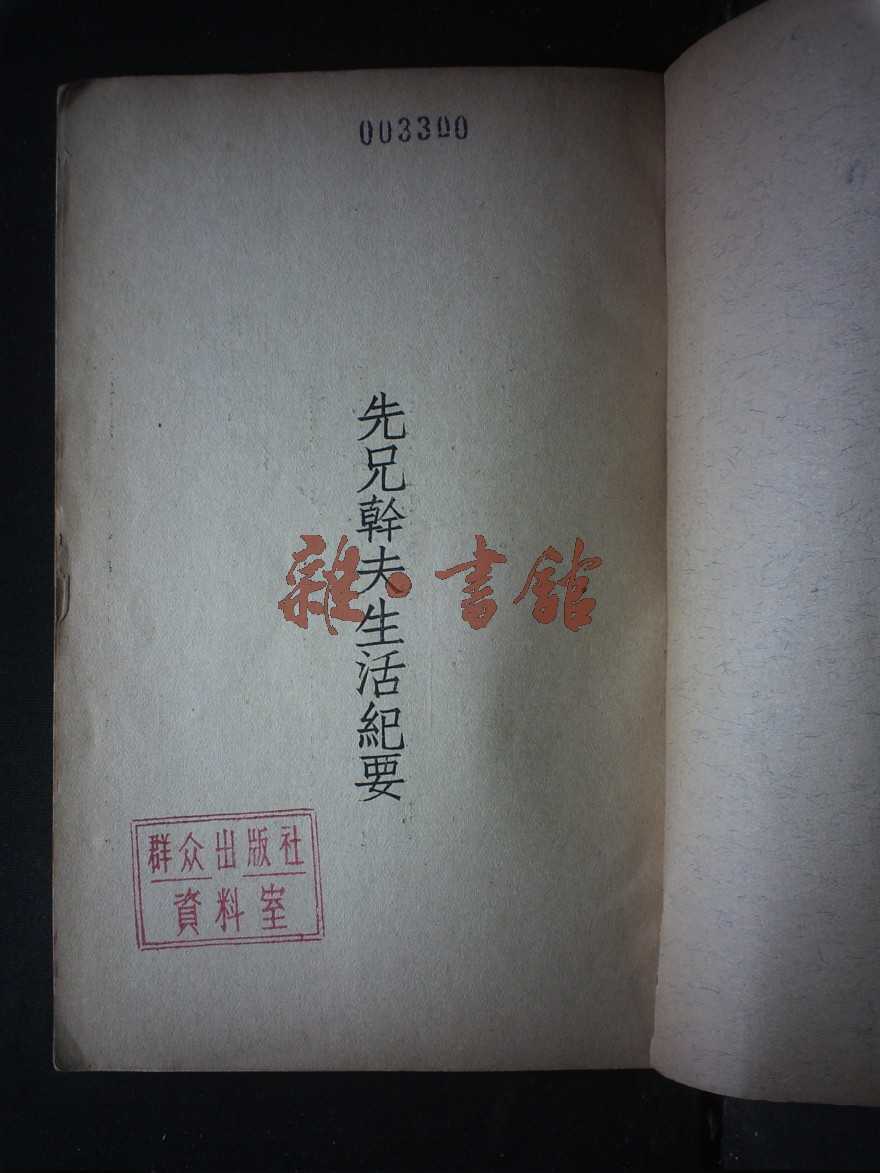 003300
先兄幹夫生活紀要
雜·書館
群众出版社
資料室